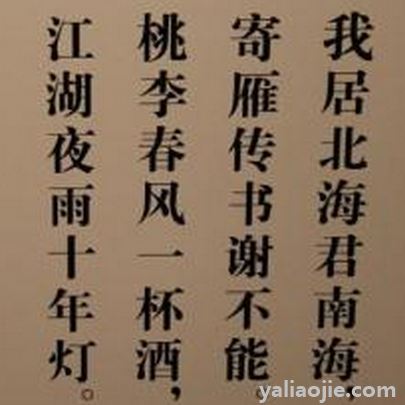 我居北海君南海，
寄雁传书谢不能。
桃李春风一杯酒，
江湖夜雨十年灯。
yaliaojie.com